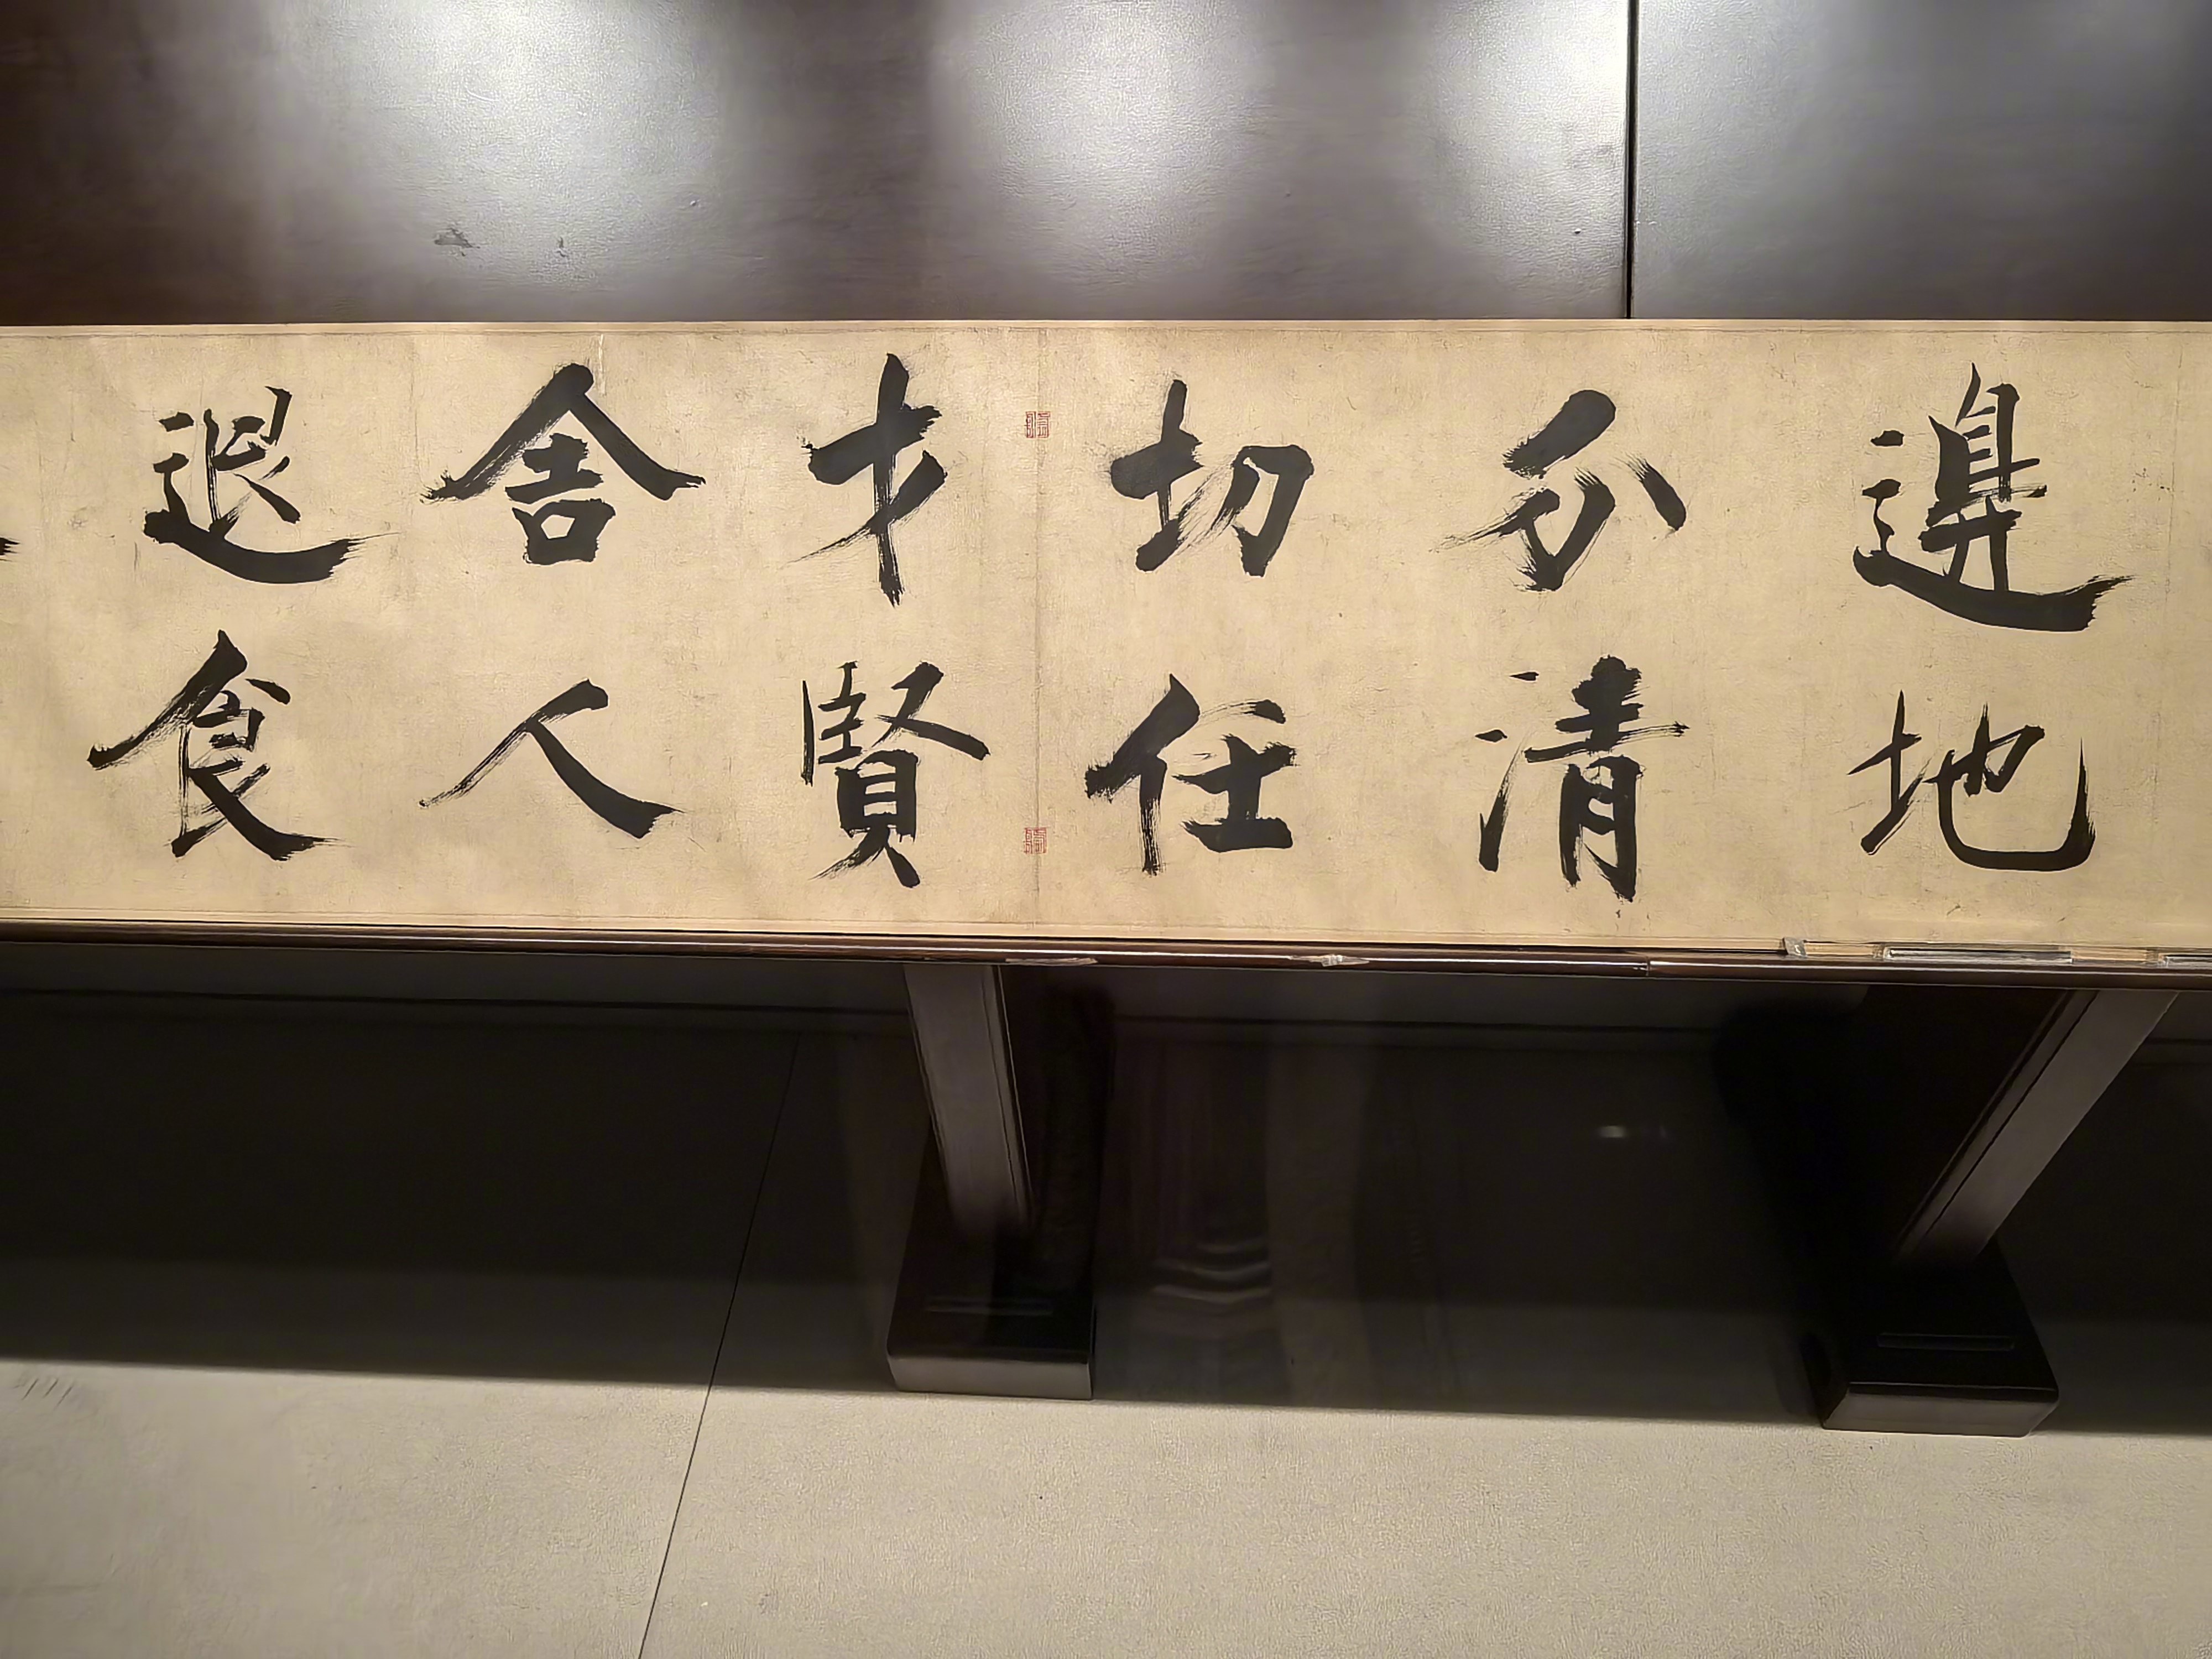 邊地
分清
切任
才賢
舍人
退食